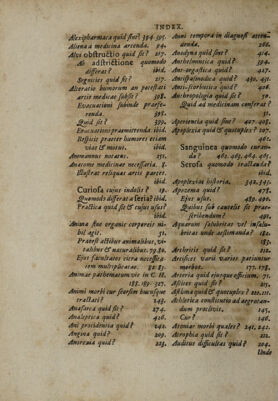 INDEX.
Alexipharmaca quid sint? 394. 395.
Aliena a medicina arcenda. 94.
Alvi obstructio quid sit? 217.
Ab adstrictione quomodo
differat? ibid.
Segnities quid sit? 217.
Alteratio humorum an potestati
artis medicæ subsit? 398.
Evacuationi subinde præfe-
renda. 398.
Quid sit? 399.
Evacuationi præmittenda. ibid.
Respicit præter humores etiam
vias & motus. ibid.
Amemannus notatus. 251.
Anatome medicinæ necessaria. 2.
Illustrat reliquas artis partes.
ibid.
Curiosa cujus indolis? 19.
Quomodo differat a seria? ibid.
Practica quid sit & cujus usus?
ibid.
Anima sine organis corporeis ni-
bil agit. 31.
Præest actibus animalibus, vi-
talibus & naturalibus. 79. 80.
Ejus facultates citra necessita-
tem multiplicatæ. 82. 83.
Animæ pathematum vis in C. H.
188. 189. 327.
Animi morbi cur seorsim hucusque
tractati? 243.
Anasarca quid sit? 274.
Analeptica quid? 426.
Ani procidentia quid? 242.
Angina quid? 209.
Anorexia quid? 223.
Anni tempora in diagnosi atten-
denda. 266.
Anodyna quid sint? 414.
Anthelmintica quid? 394.
Ant-orgastica quid? 417.
Antispasmodica quid? 430. 431.
Anti-scorbutica quid? 426.
Anthropologia quid sit? 50.
Quid ad medicinam conferat?
31.
Aperientia quid sint? 407. 405.
Apoplexia quid & quotuplex? 200.
201.
Sanguinea quomodo curan-
da? 462. 463. 464. 465.
Serosa quomodo tractanda?
ibid.
Apoplexiæ historia. 342. 343.
Apozema quid? 478.
Ejus usus. 489. 490.
Quibus sub cautelis sit præ-
scribendum? 491.
Aquarum salubritas vel insalu-
britas unde æstimanda? 182.
183.
Arthritis quid sit? 232.
Artifices varii varias pariuntur
morbos. 177. 178.
Arteria quid ejusque officium. 71.
Ascites quid sit? 215.
Asthma quid & quotuplex? 210. 211.
Athletica conditio ad ægrotan-
dum proclivis. 145.
Cur? ibid.
Atoniæ morbi quales? 241. 242.
Atrophia quid sit? 212.
Auditus difficultas quid? 204.
Unde